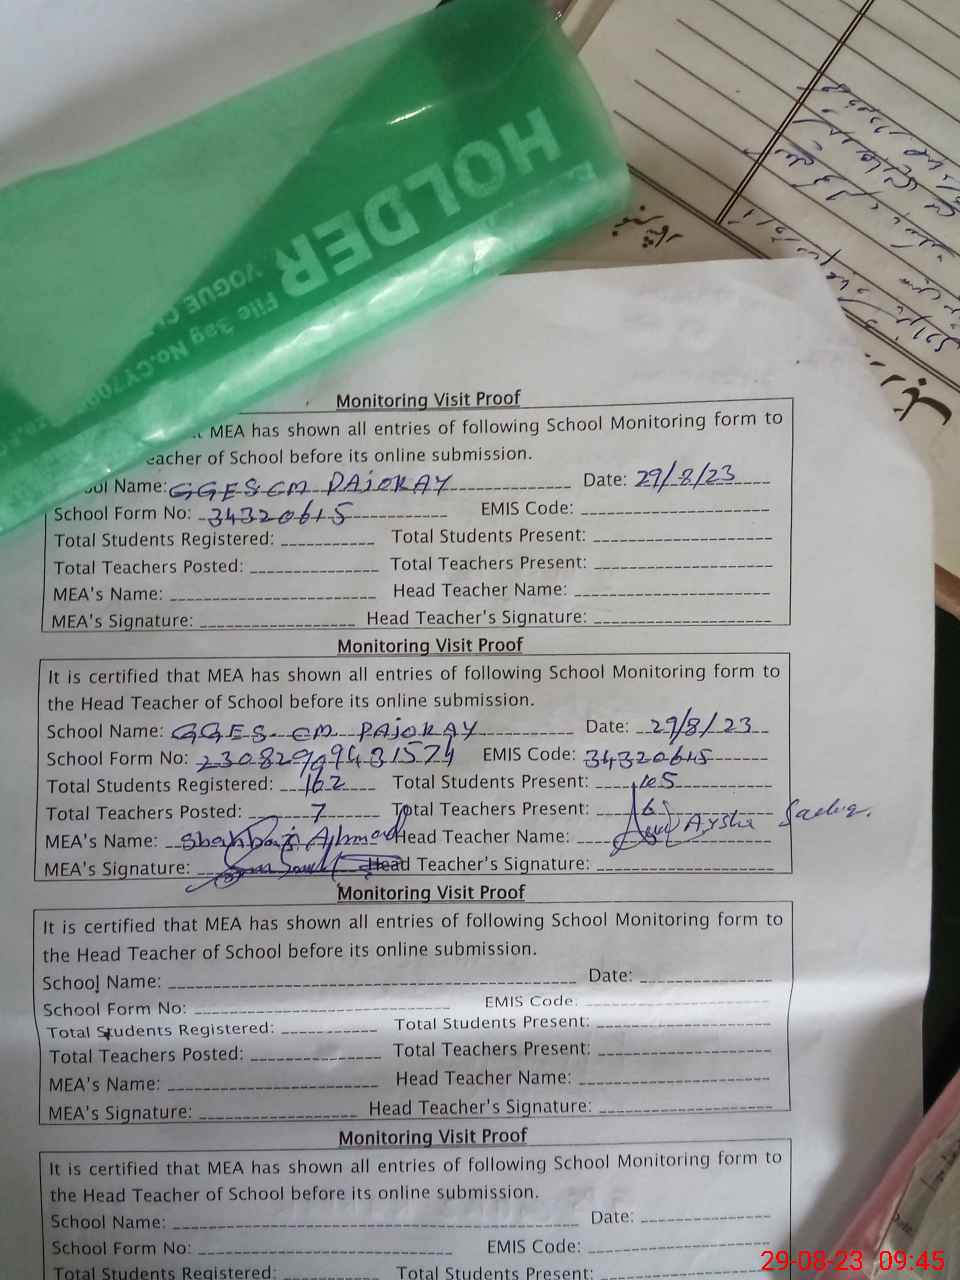 HOLDER
VOGUE
File Bag No.CY700
Monitoring Visit Proof
MEA has shown all entries of following School Monitoring form to
eacher of School before its online submission.
ool Name: GGES CM PAJOKAY Date: 29/8/23
School Form No: 34320615 EMIS Code:
Total Students Registered: Total Students Present:
Total Teachers Posted: Total Teachers Present:
MEA's Name: Head Teacher Name:
MEA's Signature: Head Teacher's Signature:
Monitoring Visit Proof
It is certified that MEA has shown all entries of following School Monitoring form to
the Head Teacher of School before its online submission.
School Name: GGES CM PAJOKAY Date: 29/8/23
School Form No: EMIS Code: 34320615
Total Students Registered: 162 Total Students Present: 105
Total Teachers Posted: 7 Total Teachers Present: 6
MEA's Name: Shahbaz Ahmad Head Teacher Name: Aysha Sadiq.
MEA's Signature: Head Teacher's Signature:
Monitoring Visit Proof
It is certified that MEA has shown all entries of following School Monitoring form to
the Head Teacher of School before its online submission.
School Name: Date:
School Form No: EMIS Code:
Total Students Registered: Total Students Present:
Total Teachers Posted: Total Teachers Present:
MEA's Name: Head Teacher Name:
MEA's Signature: Head Teacher's Signature:
Monitoring Visit Proof
It is certified that MEA has shown all entries of following School Monitoring form to
the Head Teacher of School before its online submission.
School Name: Date:
School Form No: EMIS Code:
Total Students Registered: Total Students Present:
29-08-23 09:45